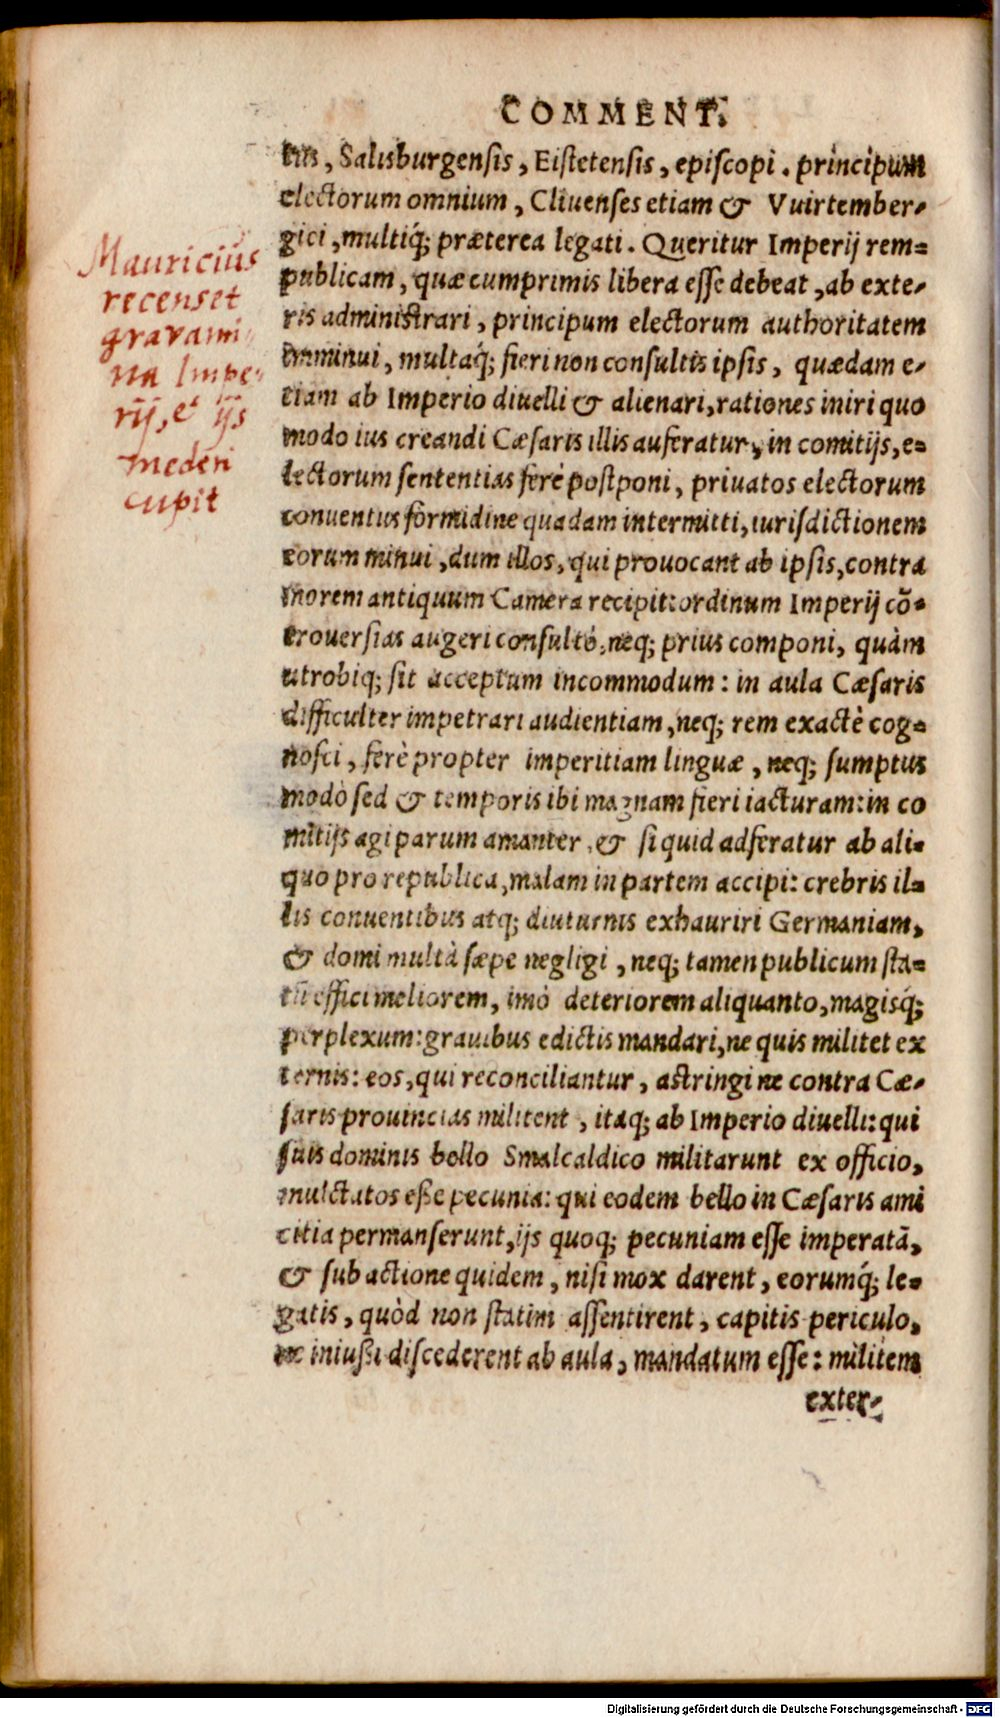 COMMENT.
bus, Salisburgensis, Eistetensis, episcopi. principum
electorum omnium, Cliuenses etiam & Vuirtember-
gici, multiq́; præterea legati. Queritur Imperij rem-
publicam, quæ cumprimis libera esse debeat, ab exte-
ris administrari, principum electorum authoritatem
imminui, multaq́; fieri non consultis ipsis, quædam e-
tiam ab Imperio diuelli & alienari, rationes iniri quo
modo ius creandi Cæsaris illis auferatur, in comitijs, e-
lectorum sententias ferè postponi, priuatos electorum
conuentus formidine quadam intermitti, iurisdictionem
eorum minui, dum illos, qui prouocant ab ipsis, contra
morem antiquum Camera recipit: ordinum Imperij cō-
trouersias augeri consultò, neq; prius componi, quàm
utrobiq; sit acceptum incommodum: in aula Cæsaris
difficulter impetrari audientiam, neq; rem exactè cog-
nosci, ferè propter imperitiam linguæ, neq; sumptus
modò sed & temporis ibi magnam fieri iacturam: in co
mitijs agi parum amanter, & si quid adferatur ab ali-
quo pro republica, malam in partem accipi: crebris il-
lis conuentibus atq; diuturnis exhauriri Germaniam,
& domi multà sæpe negligi, neq; tamen publicum sta-
tū effici meliorem, imò deteriorem aliquanto, magisq́;
perplexum: grauibus edictis mandari, ne quis militet ex
ternis: eos, qui reconciliantur, astringi ne contra Cæ-
saris prouincias militent, itaq; ab Imperio diuelli: qui
suis dominis bello Smalcaldico militarunt ex officio,
mulctatos eße pecunia: qui eodem bello in Cæsaris ami
citia permanserunt, ijs quoq; pecuniam esse imperatã,
& sub actione quidem, nisi mox darent, eorumq́; le-
gatis, quòd non statim assentirent, capitis periculo,
ne iniußi discederent ab aula, mandatum esse: militem
exter-
Mauricius
recenset
gravami
na Impe-
rij, et ijs
mederi
cupit
Digitalisierung gefördert durch die Deutsche Forschungsgemeinschaft - DFG